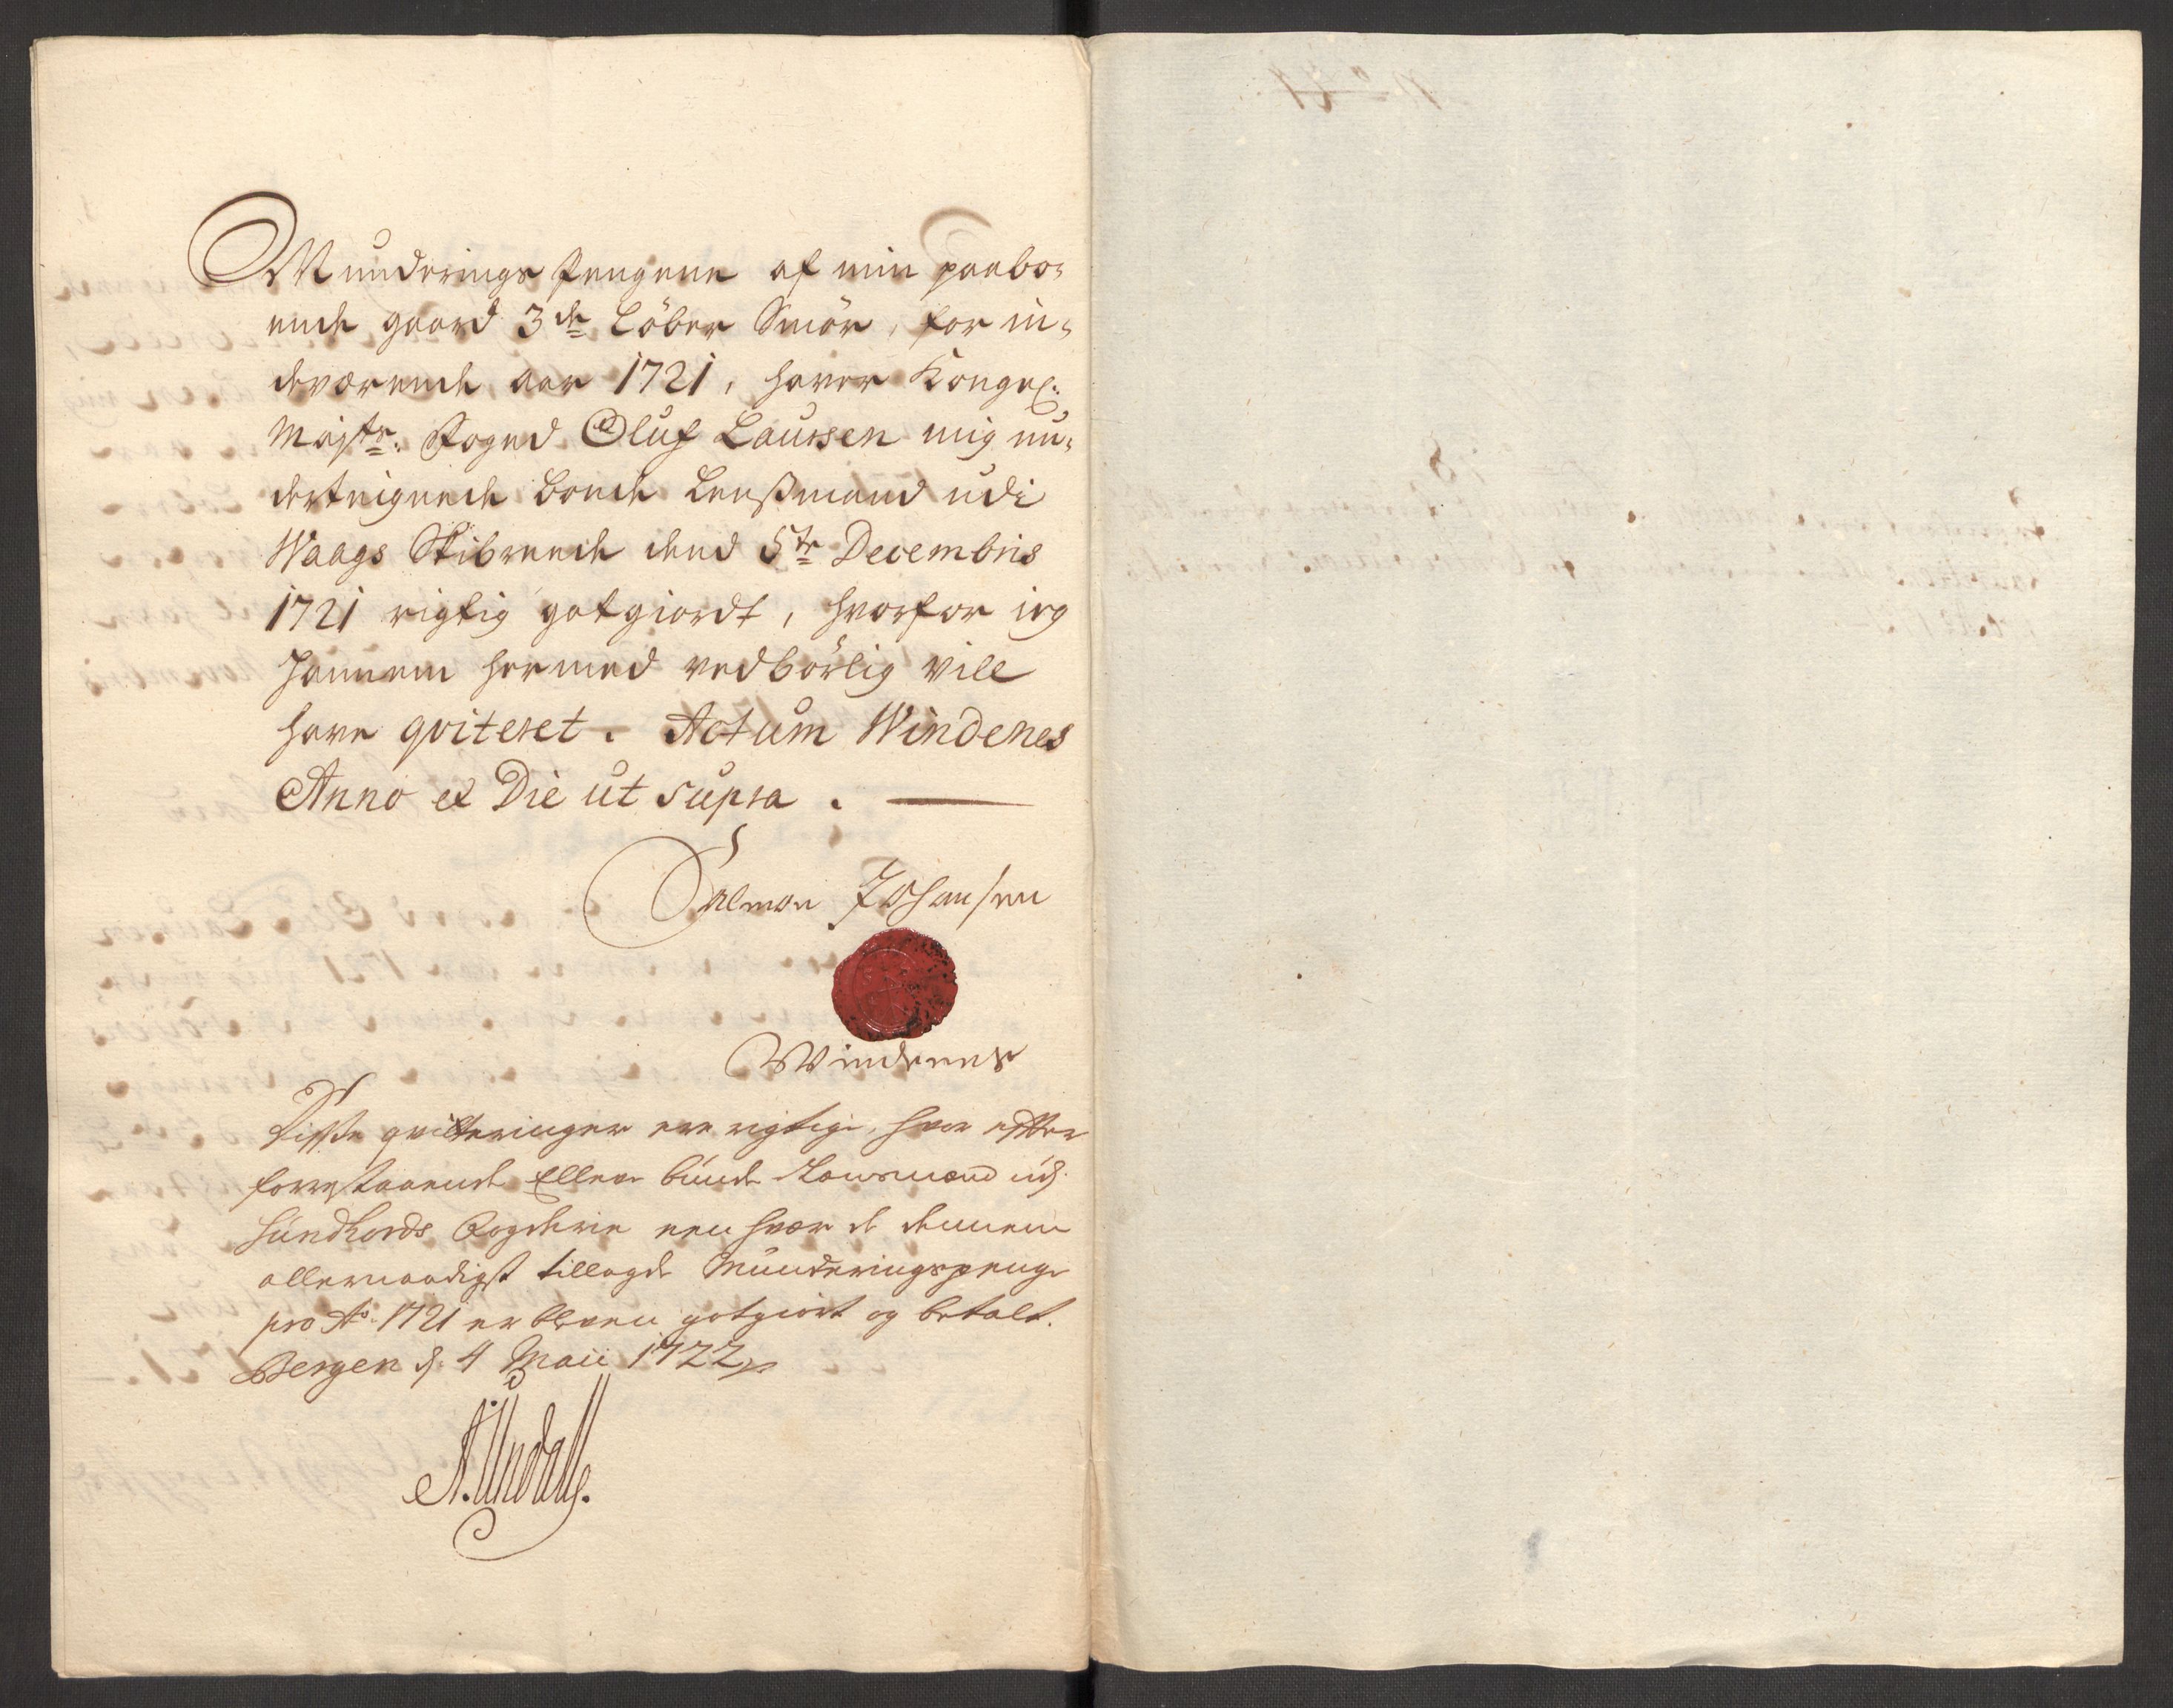 Munderings Pengene af min paabo-
ende gaard 3de Löber Smör, for in-
deværende aar 1721, haver Kongel:
Maÿts: Foged Oluf Laursen mig un-
derteignede bonde Lenßmand udi
Waags Skibrende dend 5te Decembris
1721 rigtig gotgiordt, hvorfor ieg
hannem hermed vedbörlig vill
have qviteret. Actum Windenes
Anno et Die ut supra.
Salmon Johansen
Windenes
Disse qvitteringer ere rigtige, hvor effter
forestaaende Elleve bünde Lensmænd ud.
Sundhords Fogderie een hver de dennem
allernaadigst tillagde Munderingspenge
pro Ao. 1721 er bleven gotgiort og betalt.
Bergen d. 4 Maii 1722
A. Undall.